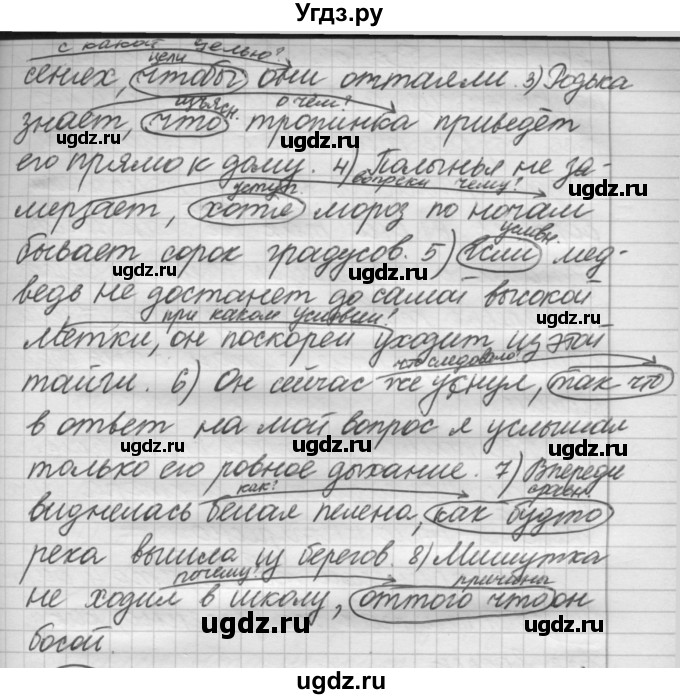 Угдз.ру
с какой целью?
цели
сенях, чтобы они оттаяли. 3) Родька
изъясн. о чём?
знает, что тропинка приведёт
его прямо к дому. 4) Полынья не за-
уступ. вопреки чему?
мерзает, хотя мороз по ночам
условн.
бывает сорок градусов. 5) Если мед-
ведь не достанет до самой высокой
при каком условии?
метки, он поскорей уходит из этой
что следовало?
тайги. 6) Он сейчас же уснул, так что
в ответ на мой вопрос я услышал
только его ровное дыхание. 7) Впереди
как? сравн.
виднелась белая пелена, как будто
река вышла из берегов. 8) Мишутка
почему? причины
не ходил в школу, оттого что он
босой.